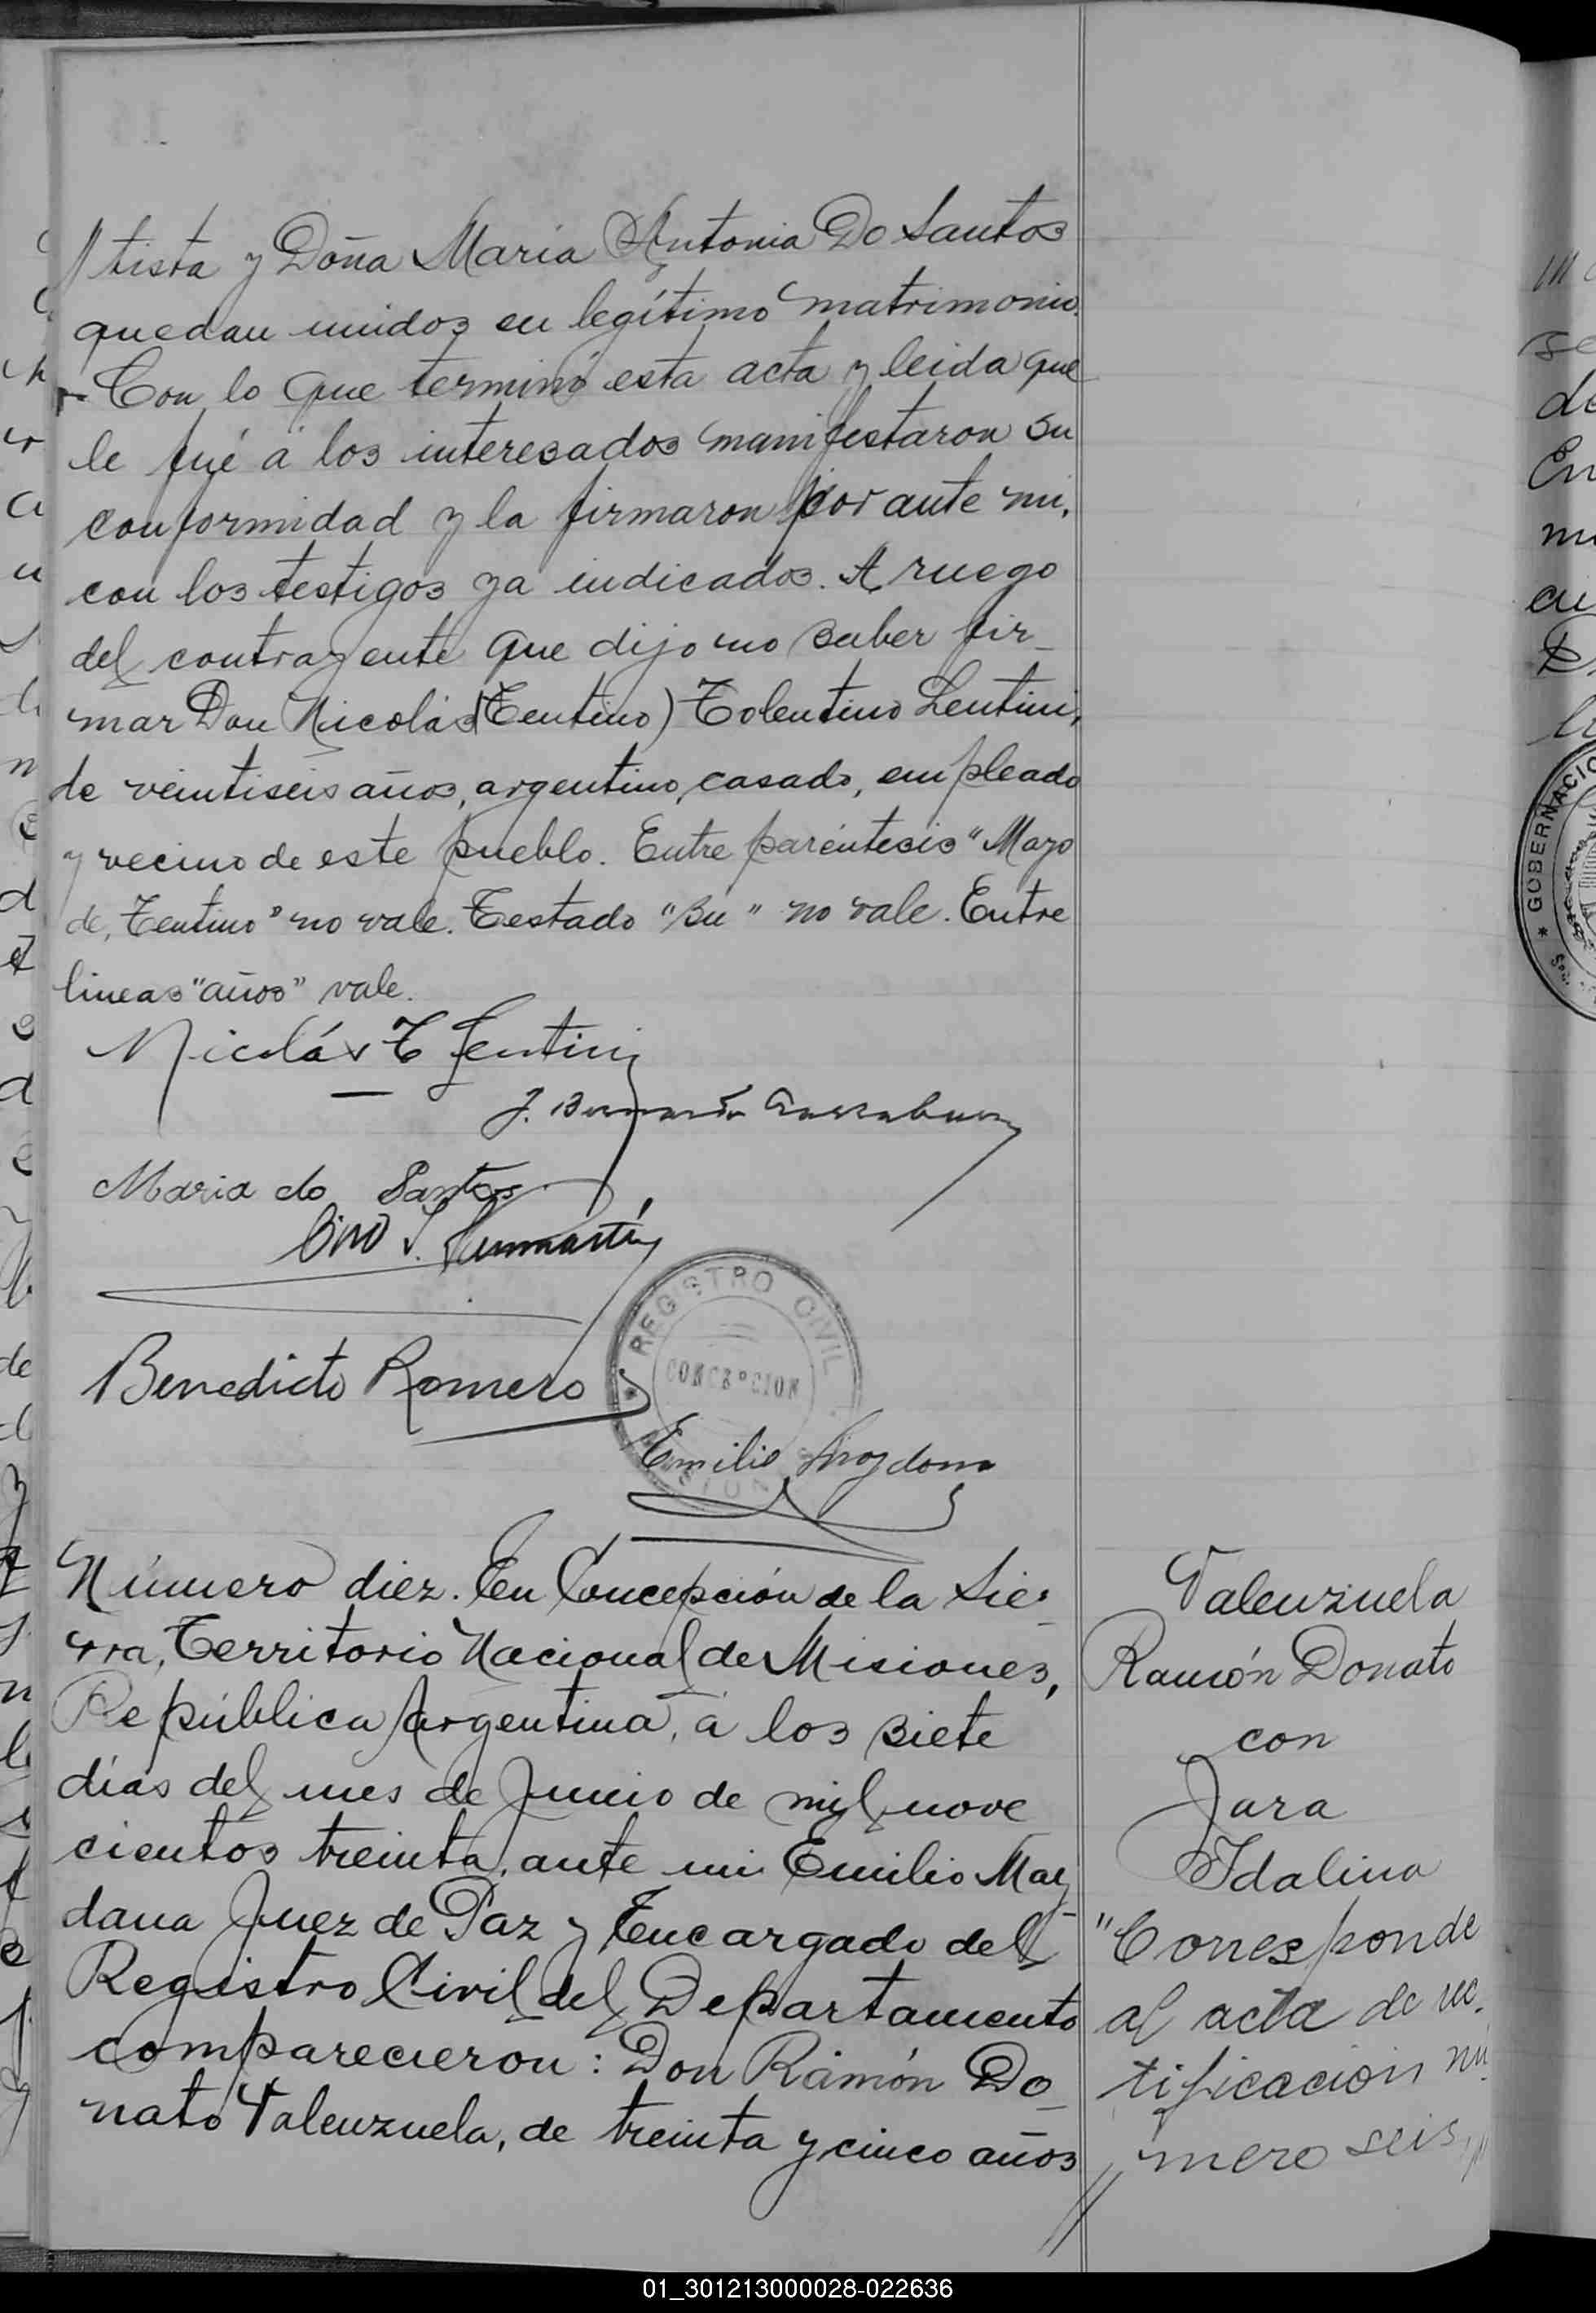 tista y Doña María Antonia Do Santos
quedan unidos en legítimo matrimonio.
Con lo que terminó esta acta y leida que
le fué á los interesados manifestaron su
conformidad y la firmaron por ante mi,
con los testigos ya indicados. A ruego
del contrayente que dijo no saber fir_
mar Don Nicolás (Tentino) Tolentino Lentini,
de veintiseis años, argentino, casado, empleado
y vecino de este pueblo. Entre paréntesis "Mayo
de, Tentino" no vale. Testado "su" no vale. Entre
lineas "años" vale.
Nicolás T Lentini
J. Bernardo
Maria do Santos
Benedicto Romero
REGISTRO CIVIL
CONCEPCION
MISIONES
Emilio Maydana
Número diez. En Concepción de la Sie_
rra, Territorio Nacional de Misiones,
República Argentina, á los siete
días del mes de Junio de mil nove
cientos treinta, ante mi Emilio May_
dana Juez de Paz y Encargado del
Registro Civil del Departamento
comparecieron: Don Ramón Do_
nato Valenzuela, de treinta y cinco años
Valenzuela
Ramón Donato
con
Jara
Idalina
"Corresponde
al acta de rec_
tificación nú_
mero seis"
GOBERNACIO
se
de
En
01_301213000028-022636